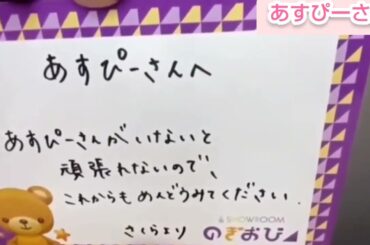 あすぴーさ
あすぴーさんへ
あすぴーさんがいないと
頑張れないので、
これからもめんどうみてください.
さくらより
& SHOWROOM
のぎおび